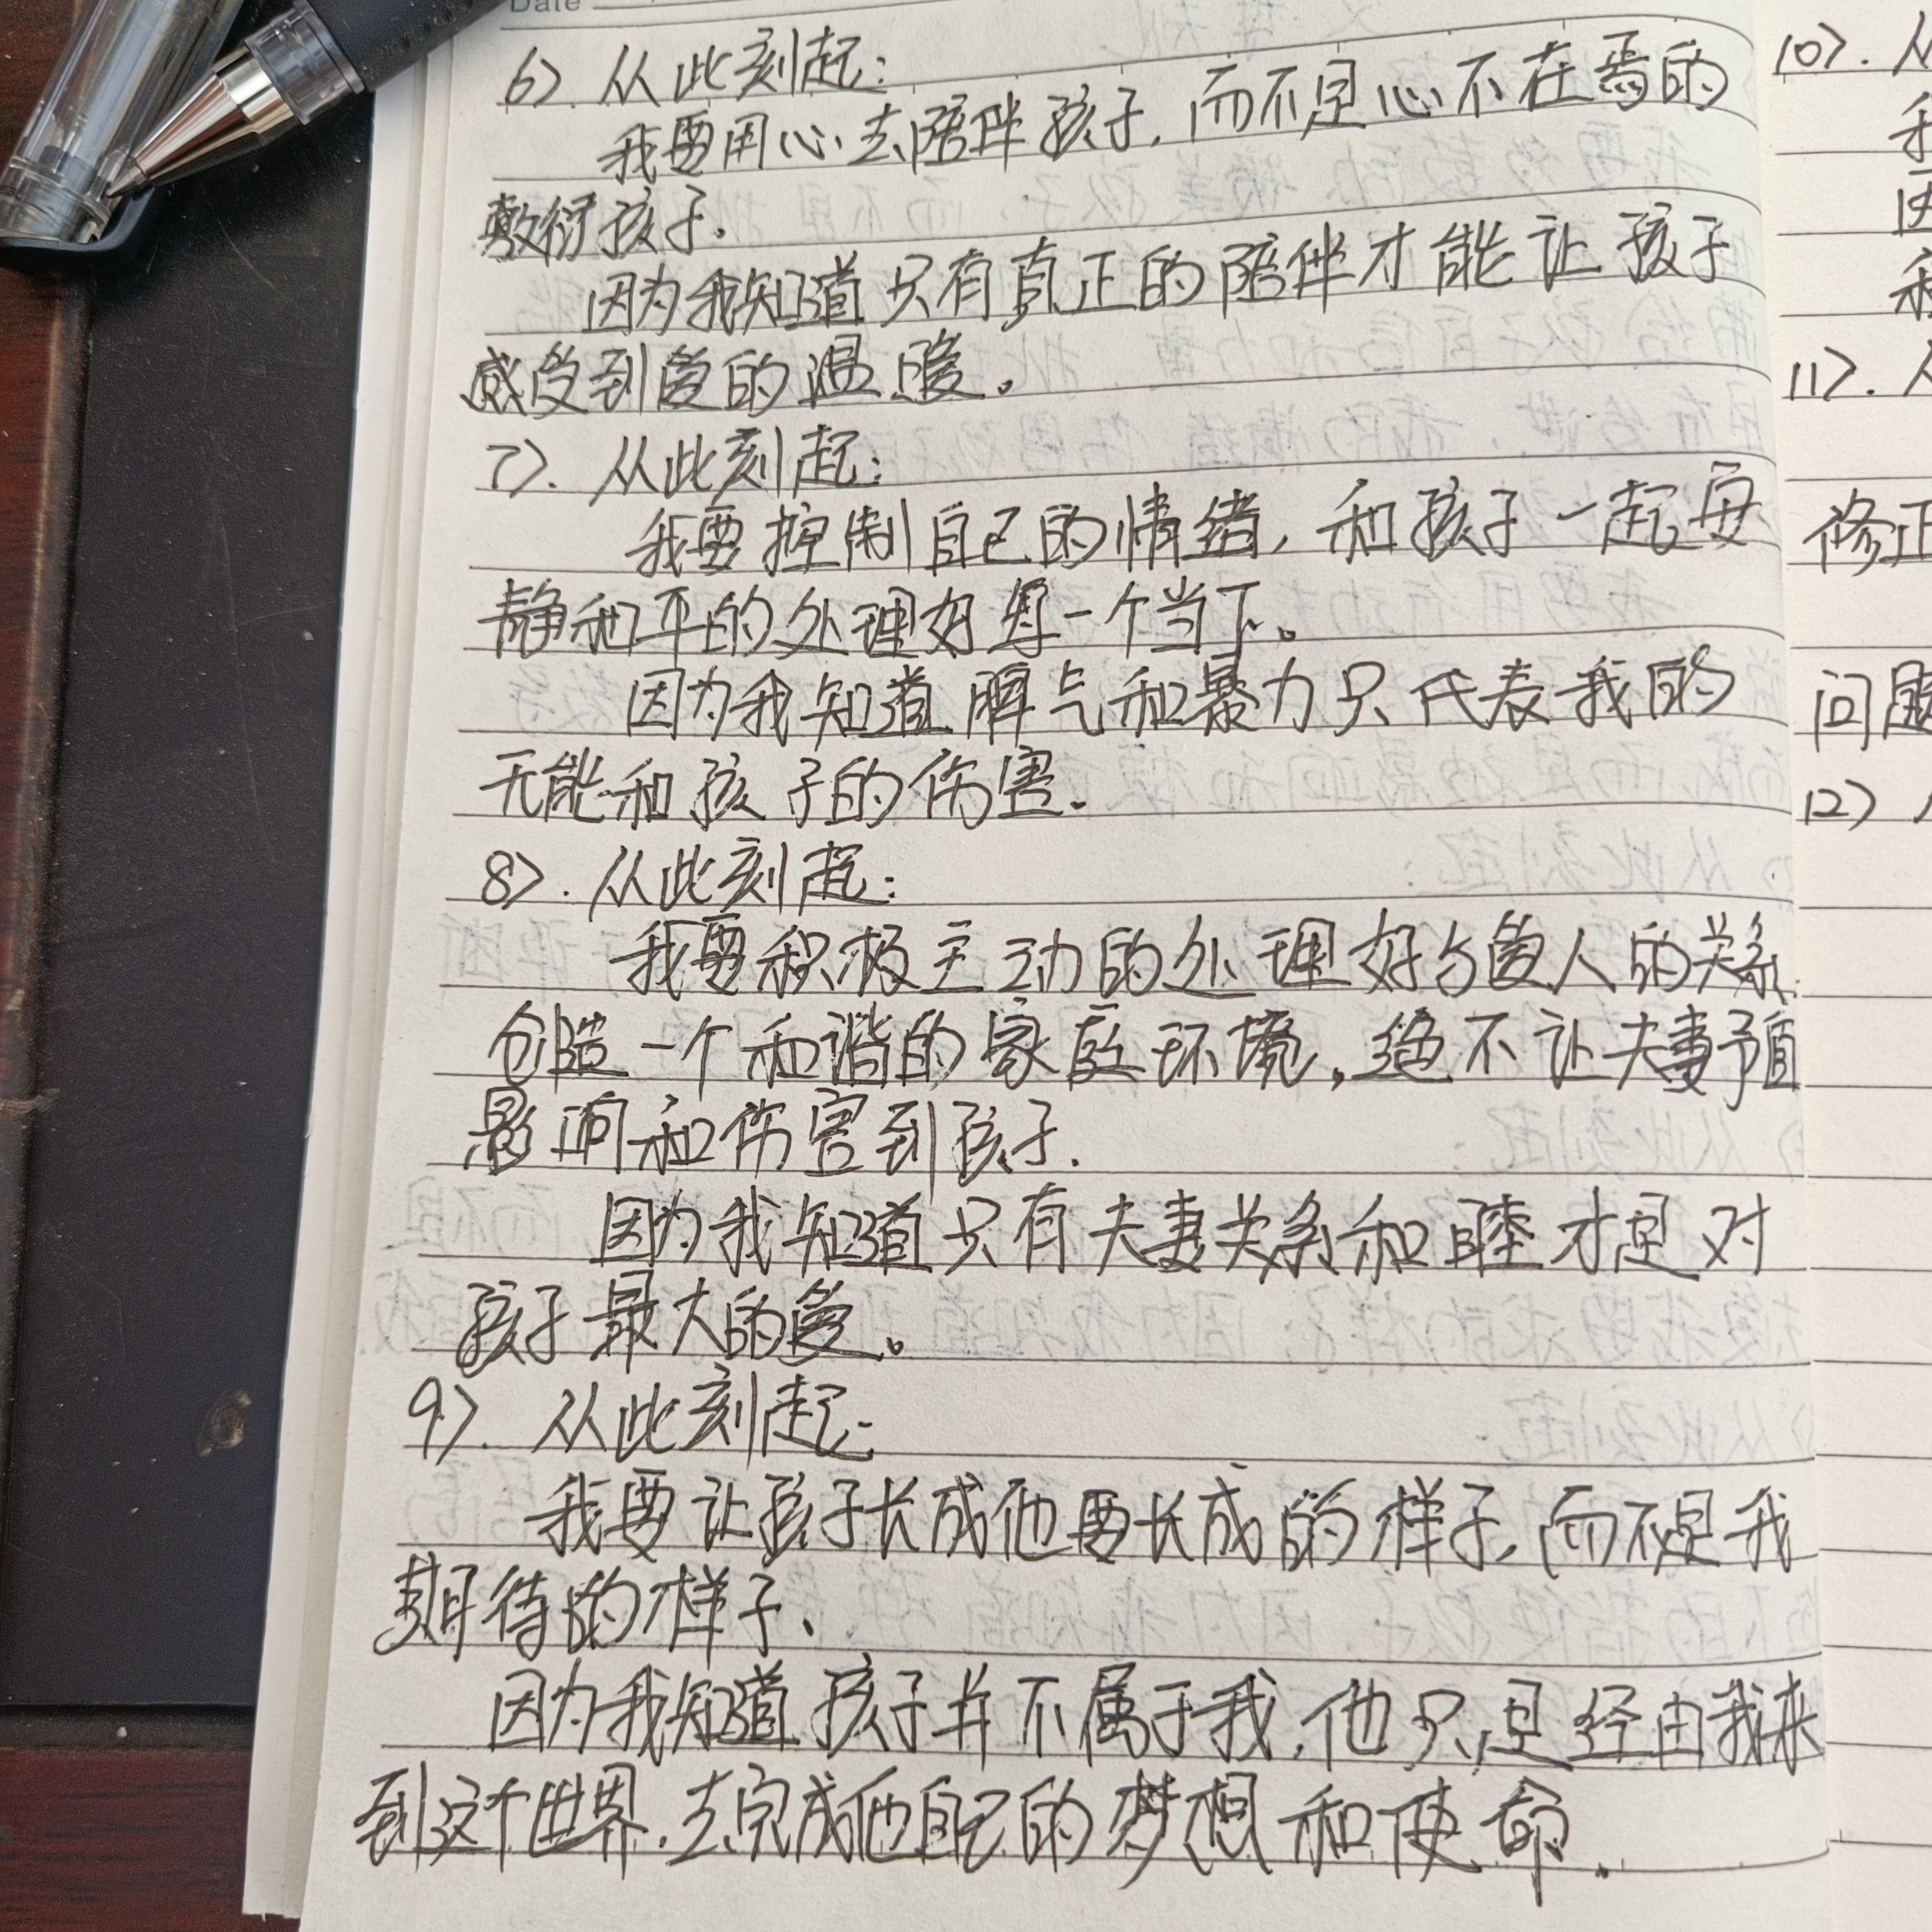 Date
6). 从此刻起:
我要用心去陪伴孩子,而不是心不在焉的
敷衍孩子.
因为我知道只有真正的陪伴才能让孩子
感受到爱的温暖。
7). 从此刻起:
我要控制自己的情绪,和孩子一起安
静和平的处理好每一个当下。
因为我知道脾气和暴力只代表我的
无能和孩子的伤害.
8). 从此刻起:
我要积极主动的处理好与爱人的关系.
创造一个和谐的家庭环境,绝不让夫妻矛盾
影响和伤害到孩子.
因为我知道只有夫妻关系和睦才是对
孩子最大的爱。
9). 从此刻起:
我要让孩子长成他要长成的样子,而不是我
期待的样子、
因为我知道孩子并不属于我,他只是经由我来
到这个世界.去完成他自己的梦想和使命.
10). 从
我
因
11).
修正
问题
12)